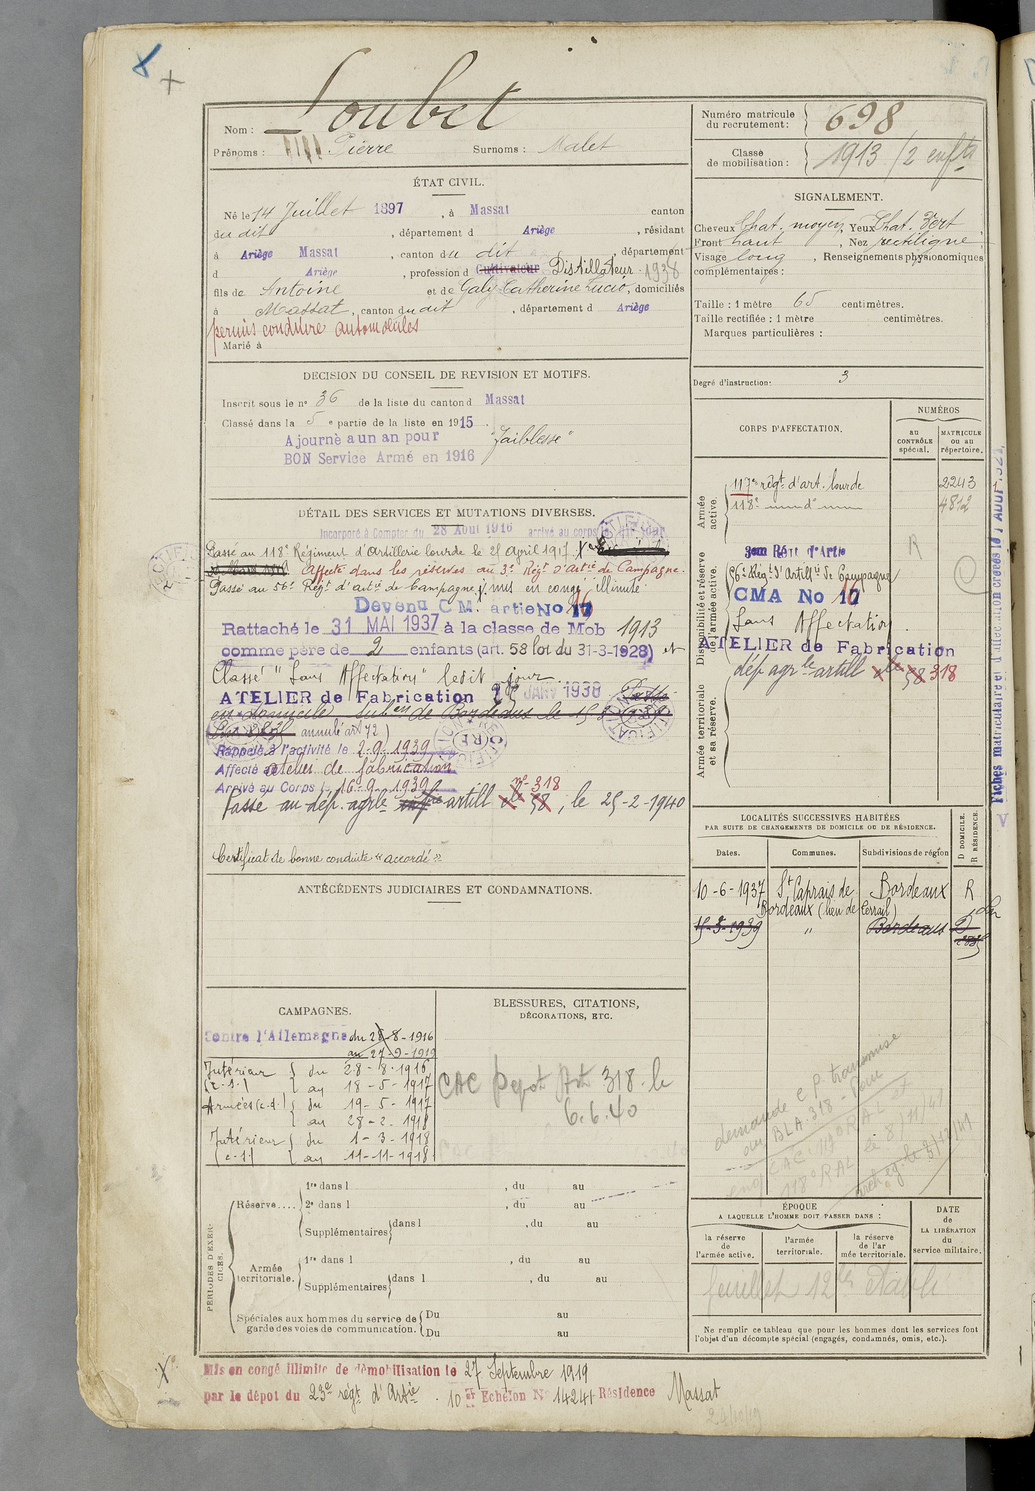 Nom : Loubet
Prénoms : Pierre Surnoms : Malet
ÉTAT CIVIL.
Né le 14 Juillet 1897, à Massat canton
du dit, département d Ariège, résidant
à Ariège Massat, canton du dit, département
d Ariège, profession d Cultivateur Distillateur 1938
fils de Antoine et de Galy Catherine Lucie, domiciliés
à Massat, canton du dit, département d Ariège
permis conduire automobiles
Marié à
DECISION DU CONSEIL DE REVISION ET MOTIFS.
Inscrit sous le n° 36 de la liste du canton d Massat
Classé dans la 5e partie de la liste en 1915.
Ajourné a un an pour "faiblesse"
BON Service Armé en 1916
DÉTAIL DES SERVICES ET MUTATIONS DIVERSES.
Incorporé à Compter du 28 Aout 1916 arrivé au corps
Passé au 118e Régiment d'Artillerie lourde le 21 April 1917.
affecté dans les réserves au 3e Régt d'Artie de Campagne.
Passé au 56e Régt d'artie de Campagne, mis en congé illimité
Devenu C.M. artie No 17 16
Rattaché le 31 MAI 1937 à la classe de Mob 1913
comme père de 2 enfants (art. 58 loi du 31-3-1928) et
Classé "Sans Affectation" le dit jour
ATELIER de Fabrication JANV 1938 Passé
en domicile subon de Bordeaux le 15 3 1939
annulé art 72)
Rappelé à l'activité le 2-9-1939
Affecté atelier de fabrication
Arrivé au Corps le 16-9-1939
n° 318
Passé au dép. agr le artill 58, le 25-2-1940
Certificat de bonne conduite "accordé"
ANTÉCÉDENTS JUDICIAIRES ET CONDAMNATIONS.
CAMPAGNES.
Contre l'Allemagne du 28-8-1916
au 27-9-1919
Intérieur { du 28-8-1916
(c-1-) { au 18-5-1917
Armées (c.d.) { du 19-5-1917
au 28-2-1918
Intérieur { du 1-3-1918
(c-1-) { au 11-11-1918
BLESSURES, CITATIONS,
DÉCORATIONS, ETC.
CAC Depot Art 318 le
6.6.40
PÉRIODES D'EXERCICES.
Réserve.... 1re dans l , du au
2e dans l , du au
Supplémentaires dans l , du au
Armée territoriale. 1re dans l , du au
Supplémentaires dans l , du au
Spéciales aux hommes du service de garde des voies de communication. Du au
Du au
Mis en congé illimité de démobilisation le 27 Septembre 1919
par le dépot du 23e régt d'Artie. 10e Echelon N° 14241 Résidence Massat
Numéro matricule
du recrutement : 698
Classe
de mobilisation : 1913 / 2 enfts
SIGNALEMENT.
Cheveux Chat. moyen, Yeux Chat. Vert
Front haut, Nez rectiligne
Visage long, Renseignements physionomiques
complémentaires :
Taille : 1 mètre 65 centimètres.
Taille rectifiée : 1 mètre centimètres.
Marques particulières :
Degré d'instruction : 3
CORPS D'AFFECTATION.
NUMÉROS
au CONTRÔLE spécial.
MATRICULE ou au répertoire.
Armée active.
117e régt d'art. lourde 2243
118e d° 4812
Disponibilité et réserve de l'armée active.
3em Rért d'Artie R
56e Régt d'Artillie de Campagne
CMA No 17 16
Sans Affectation
ATELIER de Fabrication
dép agr le artill 58 318
Armée territoriale et sa réserve.
Fiches matriculaire et d'affection créées le
LOCALITÉS SUCCESSIVES HABITÉES
PAR SUITE DE CHANGEMENTS DE DOMICILE OU DE RÉSIDENCE.
D DOMICILE. R RÉSIDENCE.
Dates. Communes. Subdivisions de région
10-6-1937 St Caprais de Bordeaux R
Bordeaux (lieu de
15-3-1939 " Bordeaux D
demande e p. transmise
au BLA.318 - pour
CAC 119° RAL
118° RAL le 8/11/41
ÉPOQUE
A LAQUELLE L'HOMME DOIT PASSER DANS :
la réserve de l'armée active.
l'armée territoriale.
la réserve de l'armée territoriale.
DATE de LA LIBÉRATION du service militaire.
feuillet 12 bis établi
Ne remplir ce tableau que pour les hommes dont les services font
l'objet d'un décompte spécial (engagés, condamnés, omis, etc.).